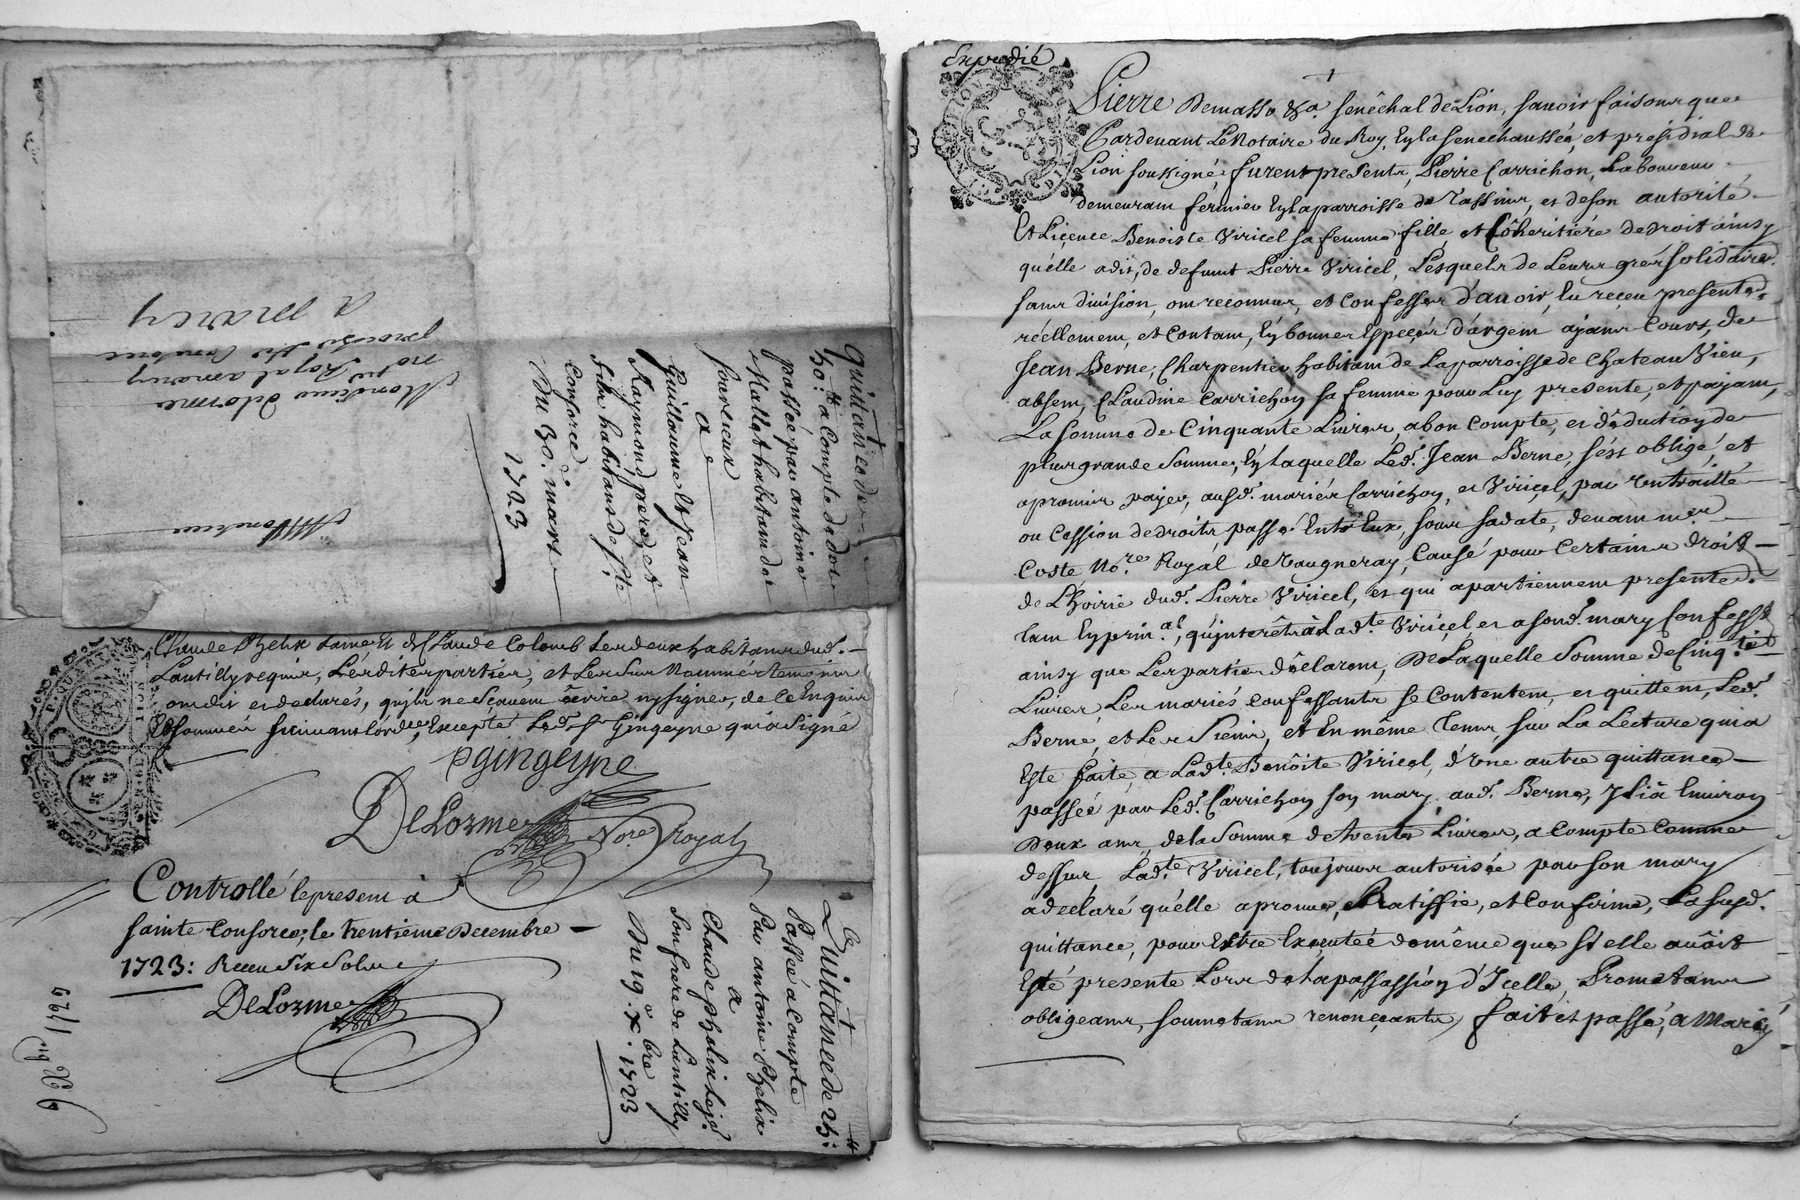 Quittance de
50.ᵗᵗ a Compte de dot
passée par antoine
Mallet habitant de
sourcieux
a
Guillaume et Jean
Raymond pere et
fils habitans de Ste
Consorce
Du 30.e mars
1723
Monsieur
Monsieur delorme
not.re Royal a marcy
paroisse Ste Consorce
A Marcy
Claude Phelix Lamert et Claude Colomb Les deux habitans dud.
Lantilly requis, Lesdites parties, et Les sus Nommés temoins
ont dit et declarés, qu'ils ne sçavent écrire ny signer, de ce Enquis
et sommés suivant l'ord.ce, Excepté Led. Sr Gingeyne qui a signé
Pgingeyne
DeLorme No.re Royal
Controllé le present à
sainte Consorce, le trentieme Decembre
1723: Receu Six Sols
DeLorme
Quittance de 25.ᵗᵗ
Passée a Compte
Par antoine Phelix
a
Claude Phelix Lejo.
son frere de Lantilly
Du 19.e Xbre 1723
Expedié
Pierre Demasso &a. senêchal de Lion, sçavoir faisons que
Pardevant Le Notaire du Roy, En la senechaussée, et présidial de
Lion soussigné, furent presents, Pierre Carrichon, Laboureur
demeurant fermier En la parroisse de Tassins, et de son autorité
Et Licence Benoiste Viricel sa femme fille, et Côheritiére de droit ainsy
qu'elle a dit, de defunt Pierre Viricel, Lesquels de Leurs grés solidaires
sans division, ont reconnus, et Confessés d'avoir, Eu reçeu presente.
réellement, et Contant, En bonnes Espeçes d'argent ajant Cours, de
Jean Berne, Charpentier habitant de La parroisse de Chateau Vieu,
absent, Claudine Carrichon sa femme pour Luy presente, et pajant,
La somme de Cinquante Livres, a bon Compte, et déduction de
plus grande somme, En Laquelle Led. Jean Berne, s'est obligé, et
a promis payer, ausd. mariés Carrichon, et Viricel, par Entraitté
ou Cession de droits passé Entre Eux, sous sa date, devant me.
Coste No.re Royal de Vaugneray, Causé pour Certains droits
de L'hoirie dud. Pierre Viricel, et qui apartiennent presentem.
tant En prin.al, qu'interêt à Lad.te Viriçel et a sond. mary Confess.
ainsy que Les parties déclarent, De Laquelle somme de Cinq.te
Livres, Les mariés Confessants se Contentent, et quittent, Led.
Berne, et Les siens, et En même tems, sur La Lecture qui a
Esté faite, a Lad.te Benôite Viricel, d'Une autre quittance
passée par Led. Carrichon son mary, aud. Berne, Il i a Environ
Deux ans, de la somme de trente Livres, a Compte Comme
dessus Lad.te Viricel, toujours autorisée par son mary
a declaré qu'elle aprouve, Ratiffie, et Confirme, La susd.
quittance, pour Estre Executée de même que si elle auôit
Esté presente Lors de la passassion d'Icelle, Prometans
obligeans, soumetans renonçants, fait et passé, a Marcy